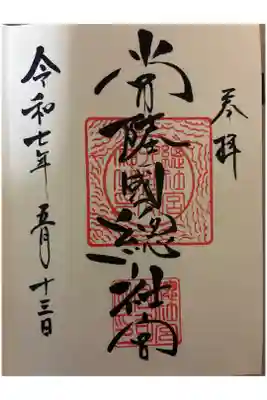 奉拝
常陸國總社宮
令和七年 五月 十三日